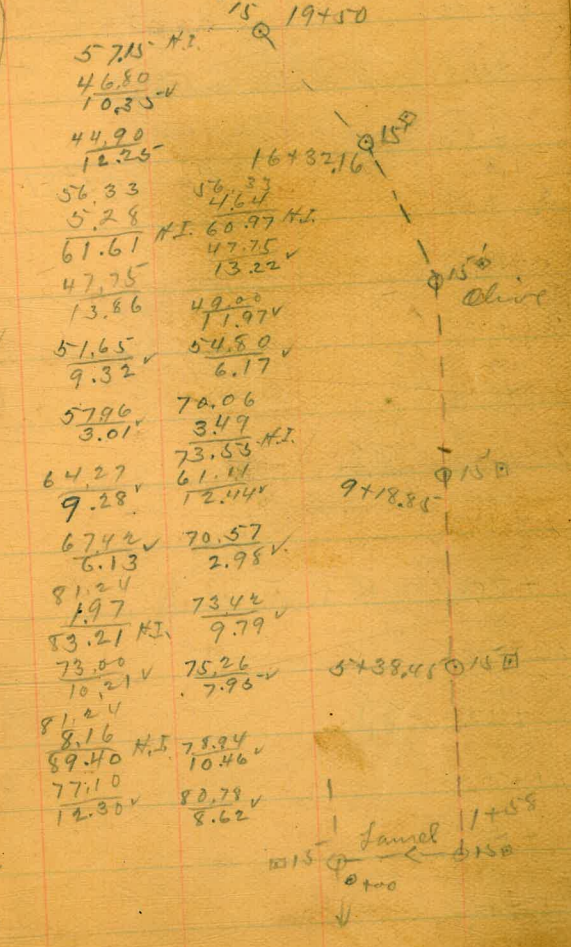 15 19+50
57.15 H.I.
46.80
10.35 ✓
44.90
12.25
56.33
5.28
61.61 H.I.
47.75
13.86
51.65
9.32 ✓
57.96
3.01 ✓
64.27
9.28 ✓
67.42
6.13 ✓
81.24
1.97
83.21 H.I.
73.00
10.21 ✓
81.24
8.16
89.40 H.I.
77.10
12.30 ✓
56.33
4.64
60.97 H.I.
47.75
13.22 ✓
49.00
11.97 ✓
54.80
6.17 ✓
70.06
3.49
73.55 H.I.
61.11
12.44 ✓
70.57
2.98 ✓
73.42
9.79 ✓
75.26
7.95 ✓
78.94
10.46 ✓
80.78
8.62 ✓
15
16+32.16
15
Olive
15
9+18.85
5+38.45 15
1+58
Laurel
15 15
0+00